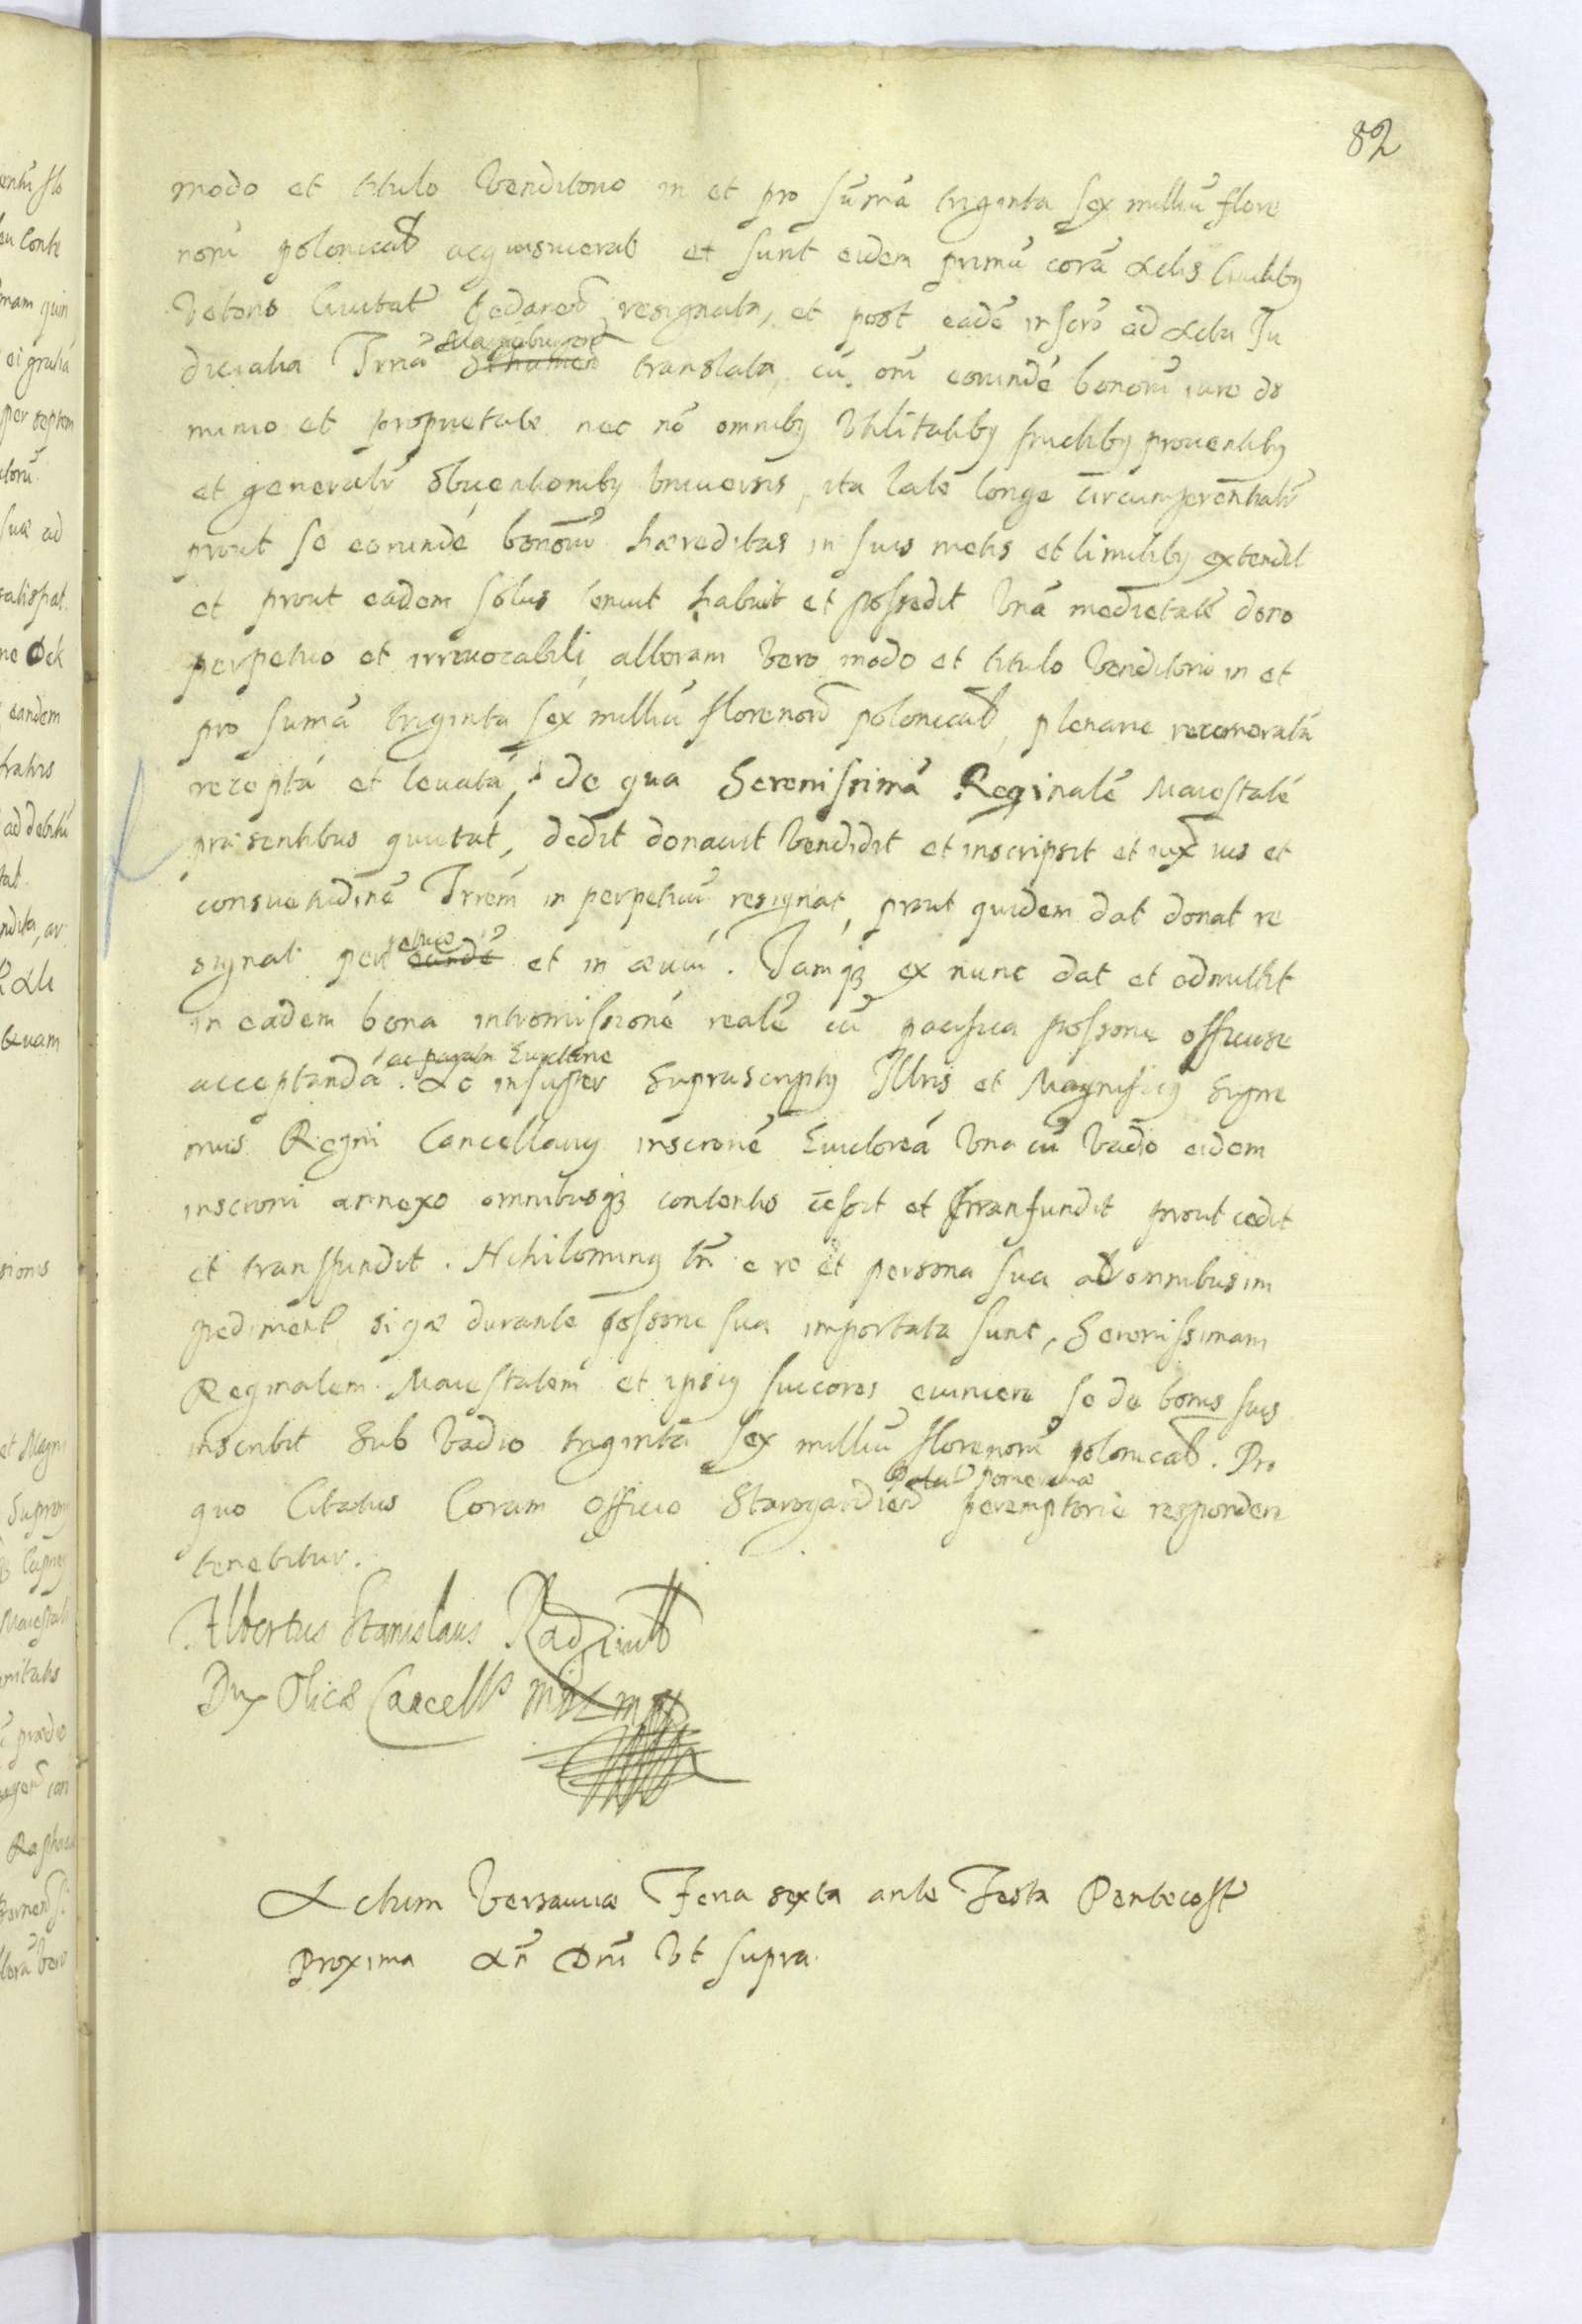 82
modo et titulo Venditorio in et pro sumã triginta sex milliũ flore
norũ polonical acquisiuerat et sunt eidem primũ corã Actis Ciuiliby
Veteris Ciuitatis Gedanen resignata, et post eadẽ inscro ad Acta Ju
dicialia Trria Mariæburgen translata, cũ om eorundẽ bonorũ iure do
minio et proprietate nec nõ omniby Vtilitatiby fructiby prouentiby
et generalr obuentioniby vniuersis, ita late longe circumferentialr
prout se eorundẽ bonorũ hæreditas in suis metis et limitiby extendit
et prout eadem solus tenuit habuit et possedit Vnã medietatẽ dono
perpetuo et irreuocabili, alteram vero modo et titulo Venditorio in et
pro sumã triginta sex milliũ florenorũ polonical, plenarie recomeratã
receptã et leuatã, de qua Serenissimã Reginalẽ Maiestatẽ
præsentibus quietat, dedit donauit Vendidit et inscripsit et iux ius et
consuetudinẽ Trrem in perpetuũ resignat, prout quidem dat donat re
signat perpetuo et in æuũ. Jamq3 ex nunc dat et admittit
in eadem bona intromissionẽ realẽ cũ pacifica possone officiose
acceptandã. Ac insuper Suprascripty Illris et Magnificy Supre
mus Regni Cancellariy inscronẽ Euictoreã Vna cũ Vadio eidem
inscroni annexo omnibusq3 contentis cessit et transfundit prout cedit
et transfundit. Nihilominy tñ e re et persona sua ab omnibus im
pediment si quæ durante possone sua importata sunt, Serenissimam
Reginalem Maiestatem et ipsiy succores euincere se de bonis suis
inscribit sub Vadio triginta sex milliũ florenorũ polonical. Pro
quo Citatus Coram Officio Starogardien Pltus Pomeraniæ peremptorie respondere
tenebitur.
Albertus Stanislaus Radziuil
Dux Olicæ Cancell M D L mpp
Actum Varsauiæ Feria sexta ante Festa Pentecost
Proxima An Dni Vt supra.